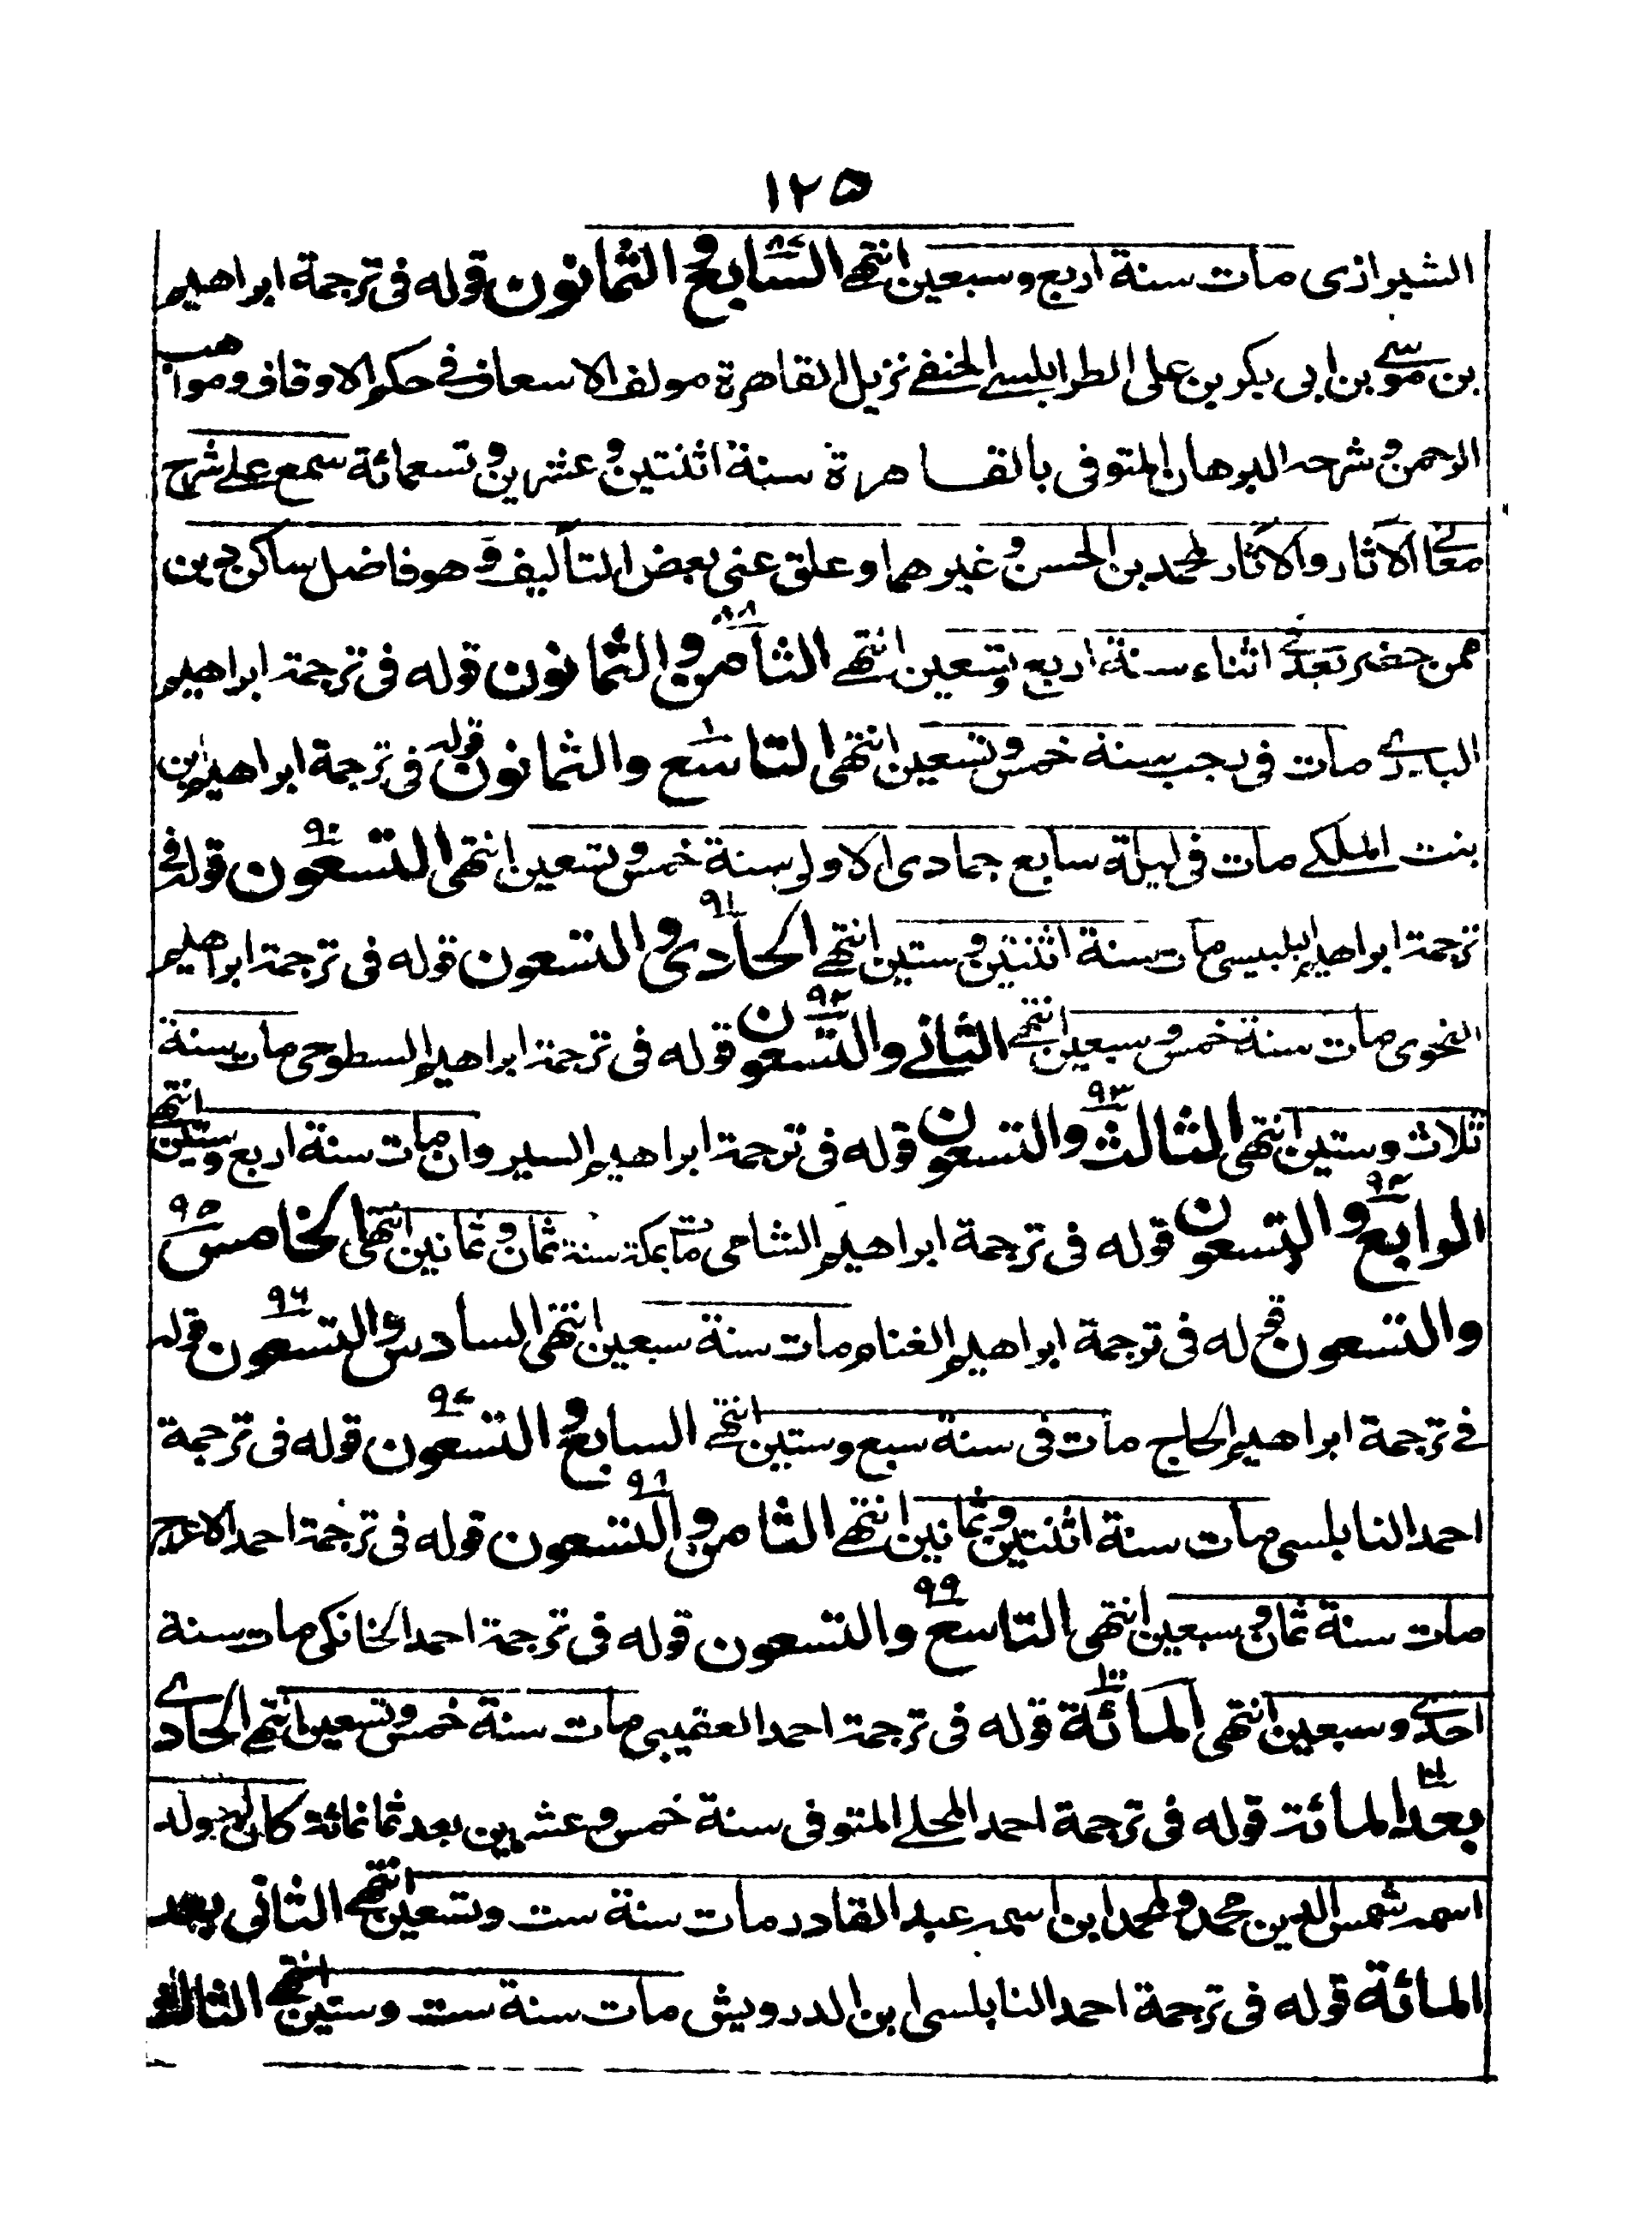 ١٢٥
الشيرازى مات سنة اربع وسبعين انتهے السابع و الثمانون قوله فى ترجمة ابراهيم
بن موسے بن ابى بكر بن على الطرابلسے الحنفے نزيل القاهرة مولف الاسعاف فے حكم الاوقاف ومواهب
الرحمن و شرحه البرهان المتوفى بالقاهرة سنة اثنتين و عشرين و تسعمائة سمع علے شرح
معانے الآثار والآثار لمحمد بن الحسن و غيرهما وعلق عنى بعض التأليف و هو فاضل ساكن دين
ممن حضر بعدے اثناء سنة اربع وتسعين انتهے الثامن و الثمانون قوله فى ترجمة ابراهيم
مات فى رجب سنة خمس و تسعين انتهى التاسع والثمانون قوله فى ترجمة ابراهيم ابن
بنت الملكے مات فى ليلة سابع جمادى الاولى سنة خمس و تسعين انتهى التسعون ٩٠ قوله فے
ترجمة ابراهيم البلبيسى مات سنة اثنتين و ستين انتهے الحادى و التسعون ٩١ قوله فى ترجمة ابراهيم
النحوى مات سنة خمس و سبعين انتهے الثانے والتسعون ٩٢ قوله فى ترجمة ابراهيم السطوحى مات سنة
ثلاث وستين انتهى الثالث والتسعون ٩٣ قوله فى ترجمة ابراهيم السيروان مات سنة اربع وستين انتهے
الرابع و التسعون ٩٤ قوله فى ترجمة ابراهيم الشامى مات بمكة سنة ثمان و ثمانين انتهى الخامس ٩٥
والتسعون قوله فى ترجمة ابراهيم الغنام مات سنة سبعين انتهى السادس و التسعون ٩٦ قوله
فے ترجمة ابراهيم الحاج مات فى سنة سبع وستين انتهے السابع و التسعون ٩٧ قوله فى ترجمة
احمد النابلسى مات سنة اثنتين و ثمانين انتهے الثامن و التسعون ٩٨ قوله فى ترجمة احمد الاعرج
مات سنة ثمان و سبعين انتهى التاسع والتسعون ٩٩ قوله فى ترجمة احمد الخانكى مات سنة
احدے وسبعين انتهى المائة ١٠٠ قوله فى ترجمة احمد العقيبى مات سنة خمس و تسعين انتهے الحادے
بعد المائة ١٠١ قوله فى ترجمة احمد المحلے المتوفى سنة خمس و عشرين بعد ثمانمائة كان له ولد
اسمه شمس الدين محمد و لمحمد ابن اسمه عبد القادر مات سنة ست وتسعين انتهے الثانى بعد
المائة قوله فى ترجمة احمد النابلسى ابن الدرويش مات سنة ست وستين انتهے الثالث